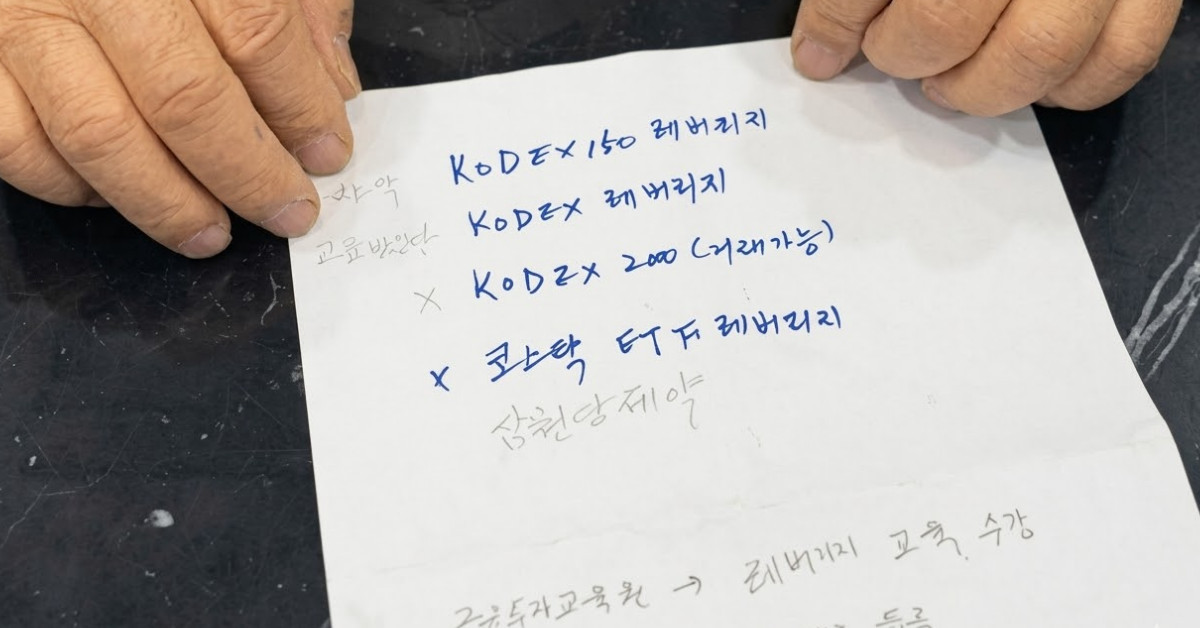 KODEX 150 레버리지
KODEX 레버리지
X KODEX 2000 (거래가능)
X 코스탁 ETF 레버리지
삼천당제약
금융투자교육원 → 레버리지 교육. 수강
등록